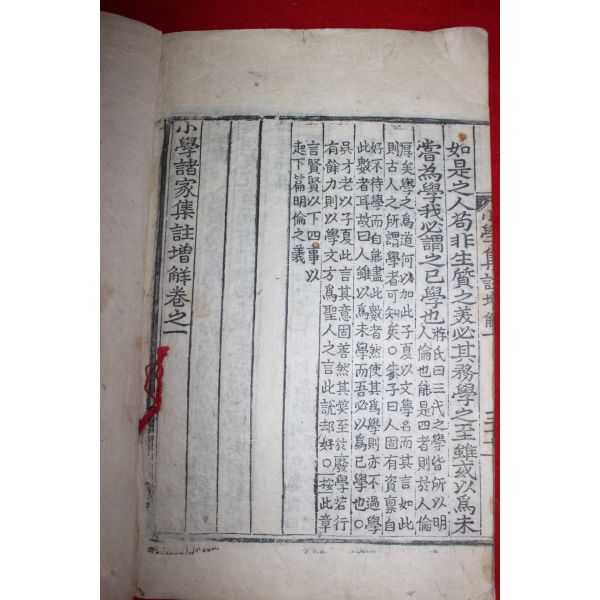 小學集註增解
如是之人苟非生質之美必其務學之至雖或以爲未
嘗為學我必謂之已學也
蔣氏曰三代之學皆所以明
人倫也能是四者則於人倫
厚矣學之爲道何以加此子夏以文學名而其言如此
則古人之所謂學者可知矣○朱子曰人固有資禀自
好不待學而自能盡此數者然使其爲學則亦不過學
此數者耳故曰人雖以爲未學而吾必以爲已學也○
吳才老以子夏此言其意固善然其弊至於廢學若行
有餘力則以學文方爲聖人之言此說却好○按此章
言賢賢以下四事以
起下篇明倫之義
小學諸家集註增解卷之一